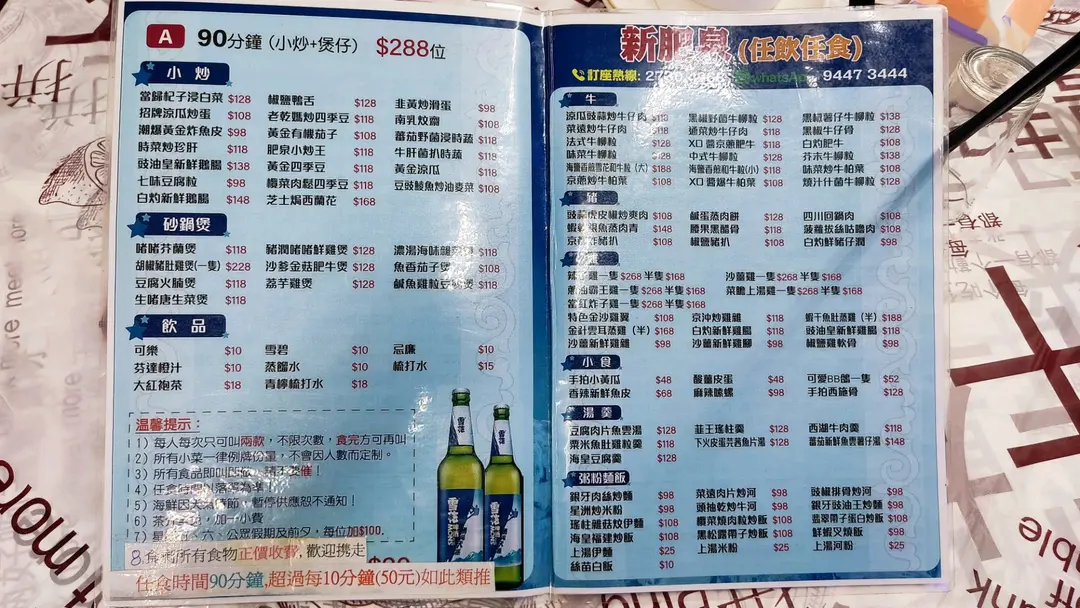 A 90分鐘 (小炒+煲仔) $288位
小炒
當歸杞子浸白菜 $128 椒鹽鴨舌 $128 韭黃炒滑蛋 $98
招牌涼瓜炒蛋 $108 老乾媽炒四季豆 $118 南乳炆齋 $108
潮爆黃金炸魚皮 $98 黃金有機茄子 $108 蕃茄野菌浸時蔬 $118
時菜炒珍肝 $118 肥泉小炒王 $118 牛肝菌扒時蔬 $118
豉油皇新鮮鵝腸 $138 黃金四季豆 $118 黃金涼瓜 $118
七味豆腐粒 $98 欖菜肉鬆四季豆 $118 豆豉鯪魚炒油麥菜 $108
白灼新鮮鵝腸 $148 芝士焗西蘭花 $168
砂鍋煲
啫啫芥蘭煲 $118 豬潤啫啫鮮雞煲 $128 濃湯海味雜菜煲 $118
胡椒豬肚雞煲(一隻) $228 沙爹金菇肥牛煲 $128 魚香茄子煲 $108
豆腐火腩煲 $118 荔芋雞煲 $128 鹹魚雞粒豆腐煲 $118
生啫唐生菜煲 $118
飲品
可樂 $10 雪碧 $10 忌廉 $10
芬達橙汁 $10 蒸餾水 $10 梳打水 $15
大紅袍茶 $18 青檸梳打水 $18
溫馨提示：
1) 每人每次只可叫兩款，不限次數，食完方可再叫
2) 所有小菜一律例牌份量，不會因人數而定制。
3) 所有食品即叫即做，請不要催！
4) 任食時間以落單為準
5) 海鮮因天氣季節，暫停供應恕不通知！
6) 茶介另加，加一小費
7) 星期五、六、公眾假期及前夕，每位加$100.
8.食剩所有食物正價收費,歡迎攜走
任食時間90分鐘,超過每10分鐘(50元)如此類推
新肥泉 (任飲任食)
訂座熱線: whatsApp 9447 3444
牛
涼瓜豉蒜炒牛仔肉 $118 黑椒野菌牛柳粒 $128 黑椒薯仔牛柳粒 $138
菜遠炒牛仔肉 $118 通菜炒牛仔肉 $118 黑椒牛仔骨 $128
法式牛柳粒 $128 XO醬京蔥肥牛 $118 白灼肥牛 $108
味菜牛柳粒 $128 中式牛柳粒 $128 芥末牛柳粒 $138
海鹽香煎雪花和牛粒(大) $188 海鹽香煎和牛粒(小) $118 味菜炒牛柏葉 $108
京蔥炒牛柏葉 $108 XO醬爆牛柏葉 $118 燒汁什菌牛柳粒 $128
豬
豉蒜虎皮椒炒爽肉 $108 鹹蛋蒸肉餅 $128 四川回鍋肉 $108
蝦乾銀魚蒸肉青 $148 腰果黑醋骨 $118 菠蘿拔絲咕嚕肉 $108
京都炸豬扒 $108 椒鹽豬扒 $108 白灼鮮豬仔潤 $98
辣子雞一隻$268 半隻$168 沙薑雞一隻$268 半隻$168
蔥油霸王雞一隻$268 半隻$168 菜膽上湯雞一隻$268 半隻$168
當紅炸子雞一隻$268 半隻$168
特色金沙雞翼 $108 京沖炒雞雜 $118 蝦干魚肚蒸雞 (半) $188
金針雲耳蒸雞 (半) $168 白灼新鮮雞腸 $118 豉油皇新鮮雞腸 $118
沙薑新鮮雞雜 $98 沙薑新鮮雞腳 $98 椒鹽雞軟骨 $98
小食
手拍小黃瓜 $48 酸薑皮蛋 $48 可愛BB鴿一隻 $52
香辣新鮮魚皮 $68 麻辣螺 $98 手拍西施骨 $128
湯羹
豆腐肉片魚雲湯 $128 韮王瑤柱羹 $128 西湖牛肉羹 $118
粟米魚肚雞粒羹 $118 下火皮蛋芫茜魚片湯 $128 蕃茄新鮮魚雲薯仔湯 $148
海皇豆腐羹 $128
粥粉麵飯
銀牙肉絲炒麵 $98 菜遠肉片炒河 $98 豉椒排骨炒河 $98
星洲炒米粉 $98 頭抽乾炒牛河 $98 銀牙豉油王炒麵 $98
瑤柱雜菇炆伊麵 $108 欖菜燒肉粒炒飯 $108 翡翠帶子蛋白炒飯 $108
海皇福建炒飯 $108 黑松露帶子炒飯 $108 鮮蝦叉燒炒飯 $98
上湯伊麵 $25 上湯米粉 $25 上湯河粉 $25
絲苗白飯 $10